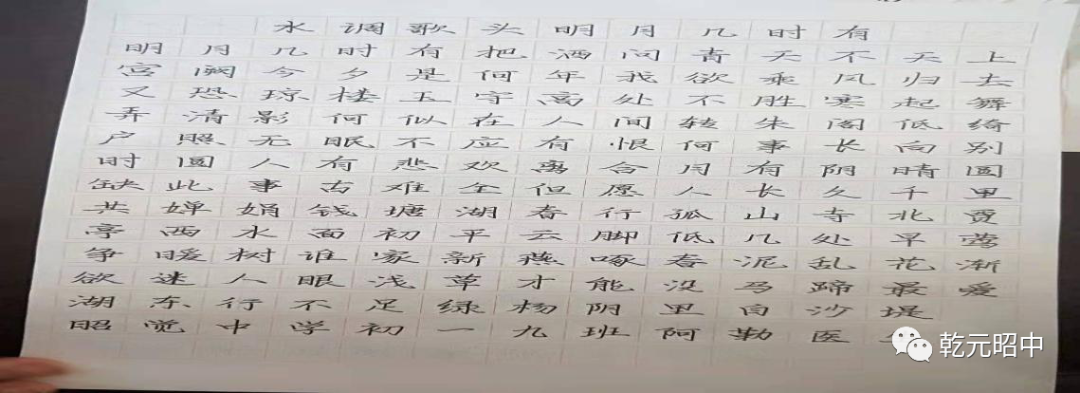 水调歌头明月几时有
明月几时有把酒问青天不天上
宫阙今夕是何年我欲乘风归去
又恐琼楼玉宇高处不胜寒起舞
弄清影何似在人间转朱阁低绮
户照无眠不应有恨何事长向别
时圆人有悲欢离合月有阴晴圆
缺此事古难全但愿人长久千里
共婵娟钱塘湖春行孤山寺北贾
亭西水面初平云脚低几处早莺
争暖树谁家新燕啄春泥乱花渐
欲迷人眼浅草才能没马蹄最爱
湖东行不足绿杨阴里白沙堤
昭觉中学初一九班阿勒医
乾元昭中